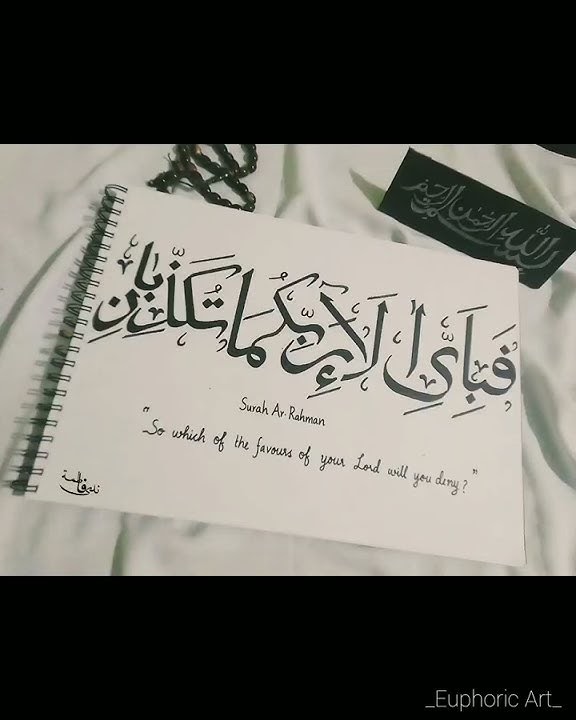 بسم الله الرحمن الرحيم
فَبِأَيِّ اٰلَآءِ رَبِّكُمَا تُكَذِّبَانِ
Surah Ar-Rahman
"So which of the favours of your Lord will you deny?"
فاطمة
_Euphoric Art_